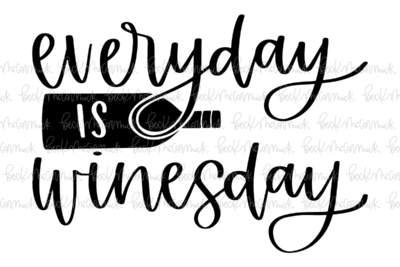 everyday
IS
winesday